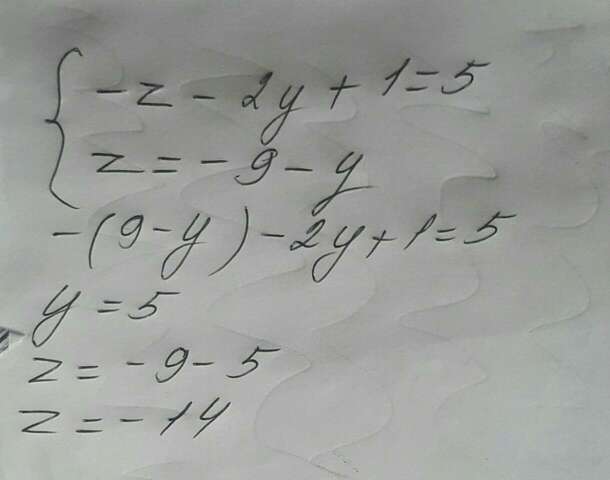 { -z - 2y + 1 = 5
z = -9 - y
-(9-y) - 2y + 1 = 5
y = 5
z = -9 - 5
z = -14